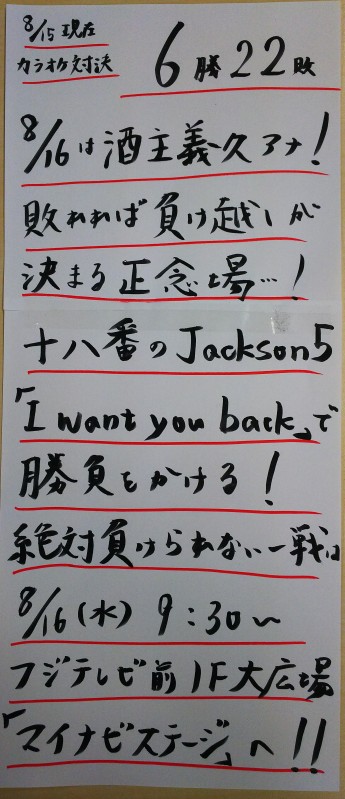 8/15現在
カラオケ対決
6勝22敗
8/16は酒主義久アナ!
敗れれば負け越しが
決まる正念場…!
十八番のJackson5
「I want you back」で
勝負をかける!
絶対負けられない一戦は
8/16(水) 9:30〜
フジテレビ前1F大広場
「マイナビステージ」へ!!